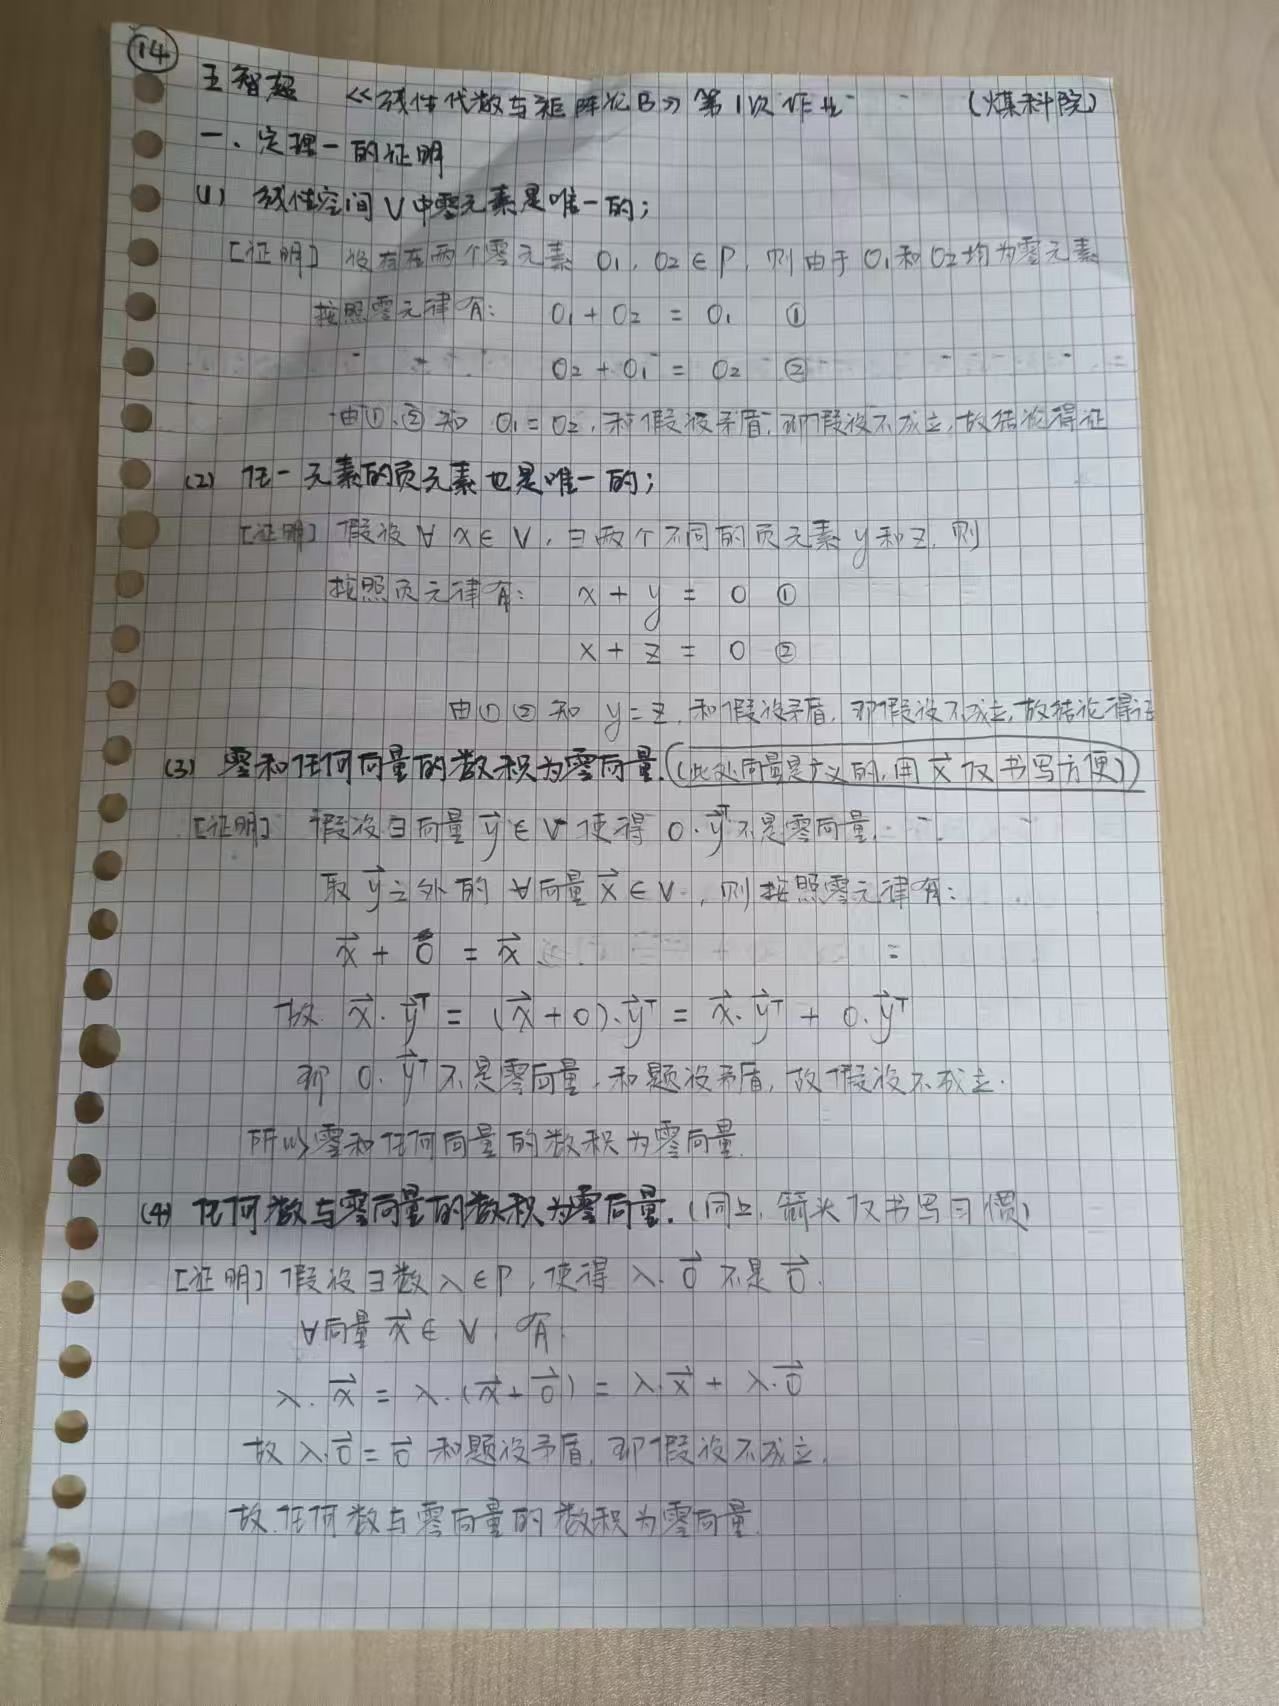 14
王智超 《线性代数与矩阵论B》第1次作业 (煤科院)
一、定理一的证明
(1) 线性空间V中零元素是唯一的;
[证明] 设存在两个零元素 O₁, O₂∈P, 则由于O₁和O₂均为零元素
按照零元律有: O₁+O₂ = O₁ ①
O₂+O₁ = O₂ ②
由①、②知 O₁=O₂, 和假设矛盾, 即假设不成立, 故结论得证
(2) 任一元素的负元素也是唯一的;
[证明] 假设 ∀ x∈V, ∃两个不同的负元素y和z, 则
按照负元律有: x + y = 0 ①
x + z = 0 ②
由①②知 y=z, 和假设矛盾, 即假设不成立, 故结论得证
(3) 零和任何向量的数积为零向量. (此处向量是广义的, 用 x⃗ 仅书写方便)
[证明] 假设∃向量 y⃗∈V 使得 0·y⃗ᵀ不是零向量.
取 y⃗之外的 ∀向量 x⃗∈V, 则按照零元律有:
x⃗ + 0⃗ = x⃗
故 x⃗·y⃗ᵀ = (x⃗+0)·y⃗ᵀ = x⃗·y⃗ᵀ + 0·y⃗ᵀ
即 0·y⃗ᵀ不是零向量, 和题设矛盾, 故假设不成立.
所以零和任何向量的数积为零向量.
(4) 任何数与零向量的数积为零向量. (同上, 箭头仅书写习惯)
[证明] 假设∃数λ∈P, 使得 λ·0⃗ 不是 0⃗.
∀向量 x⃗∈V, 有
λ·x⃗ = λ·(x⃗+0⃗) = λ·x⃗ + λ·0⃗
故 λ·0⃗ = 0⃗ 和题设矛盾, 即假设不成立.
故任何数与零向量的数积为零向量.